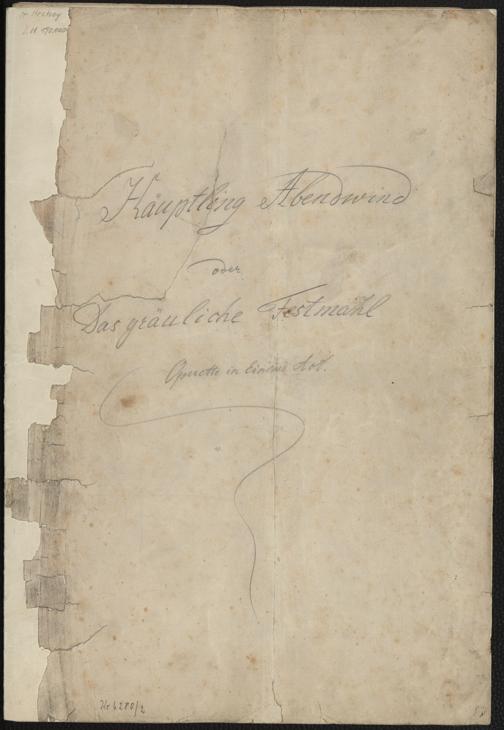 Häuptling Abendwind
oder
Das gräuliche Festmahl
Operette in Einem Act.